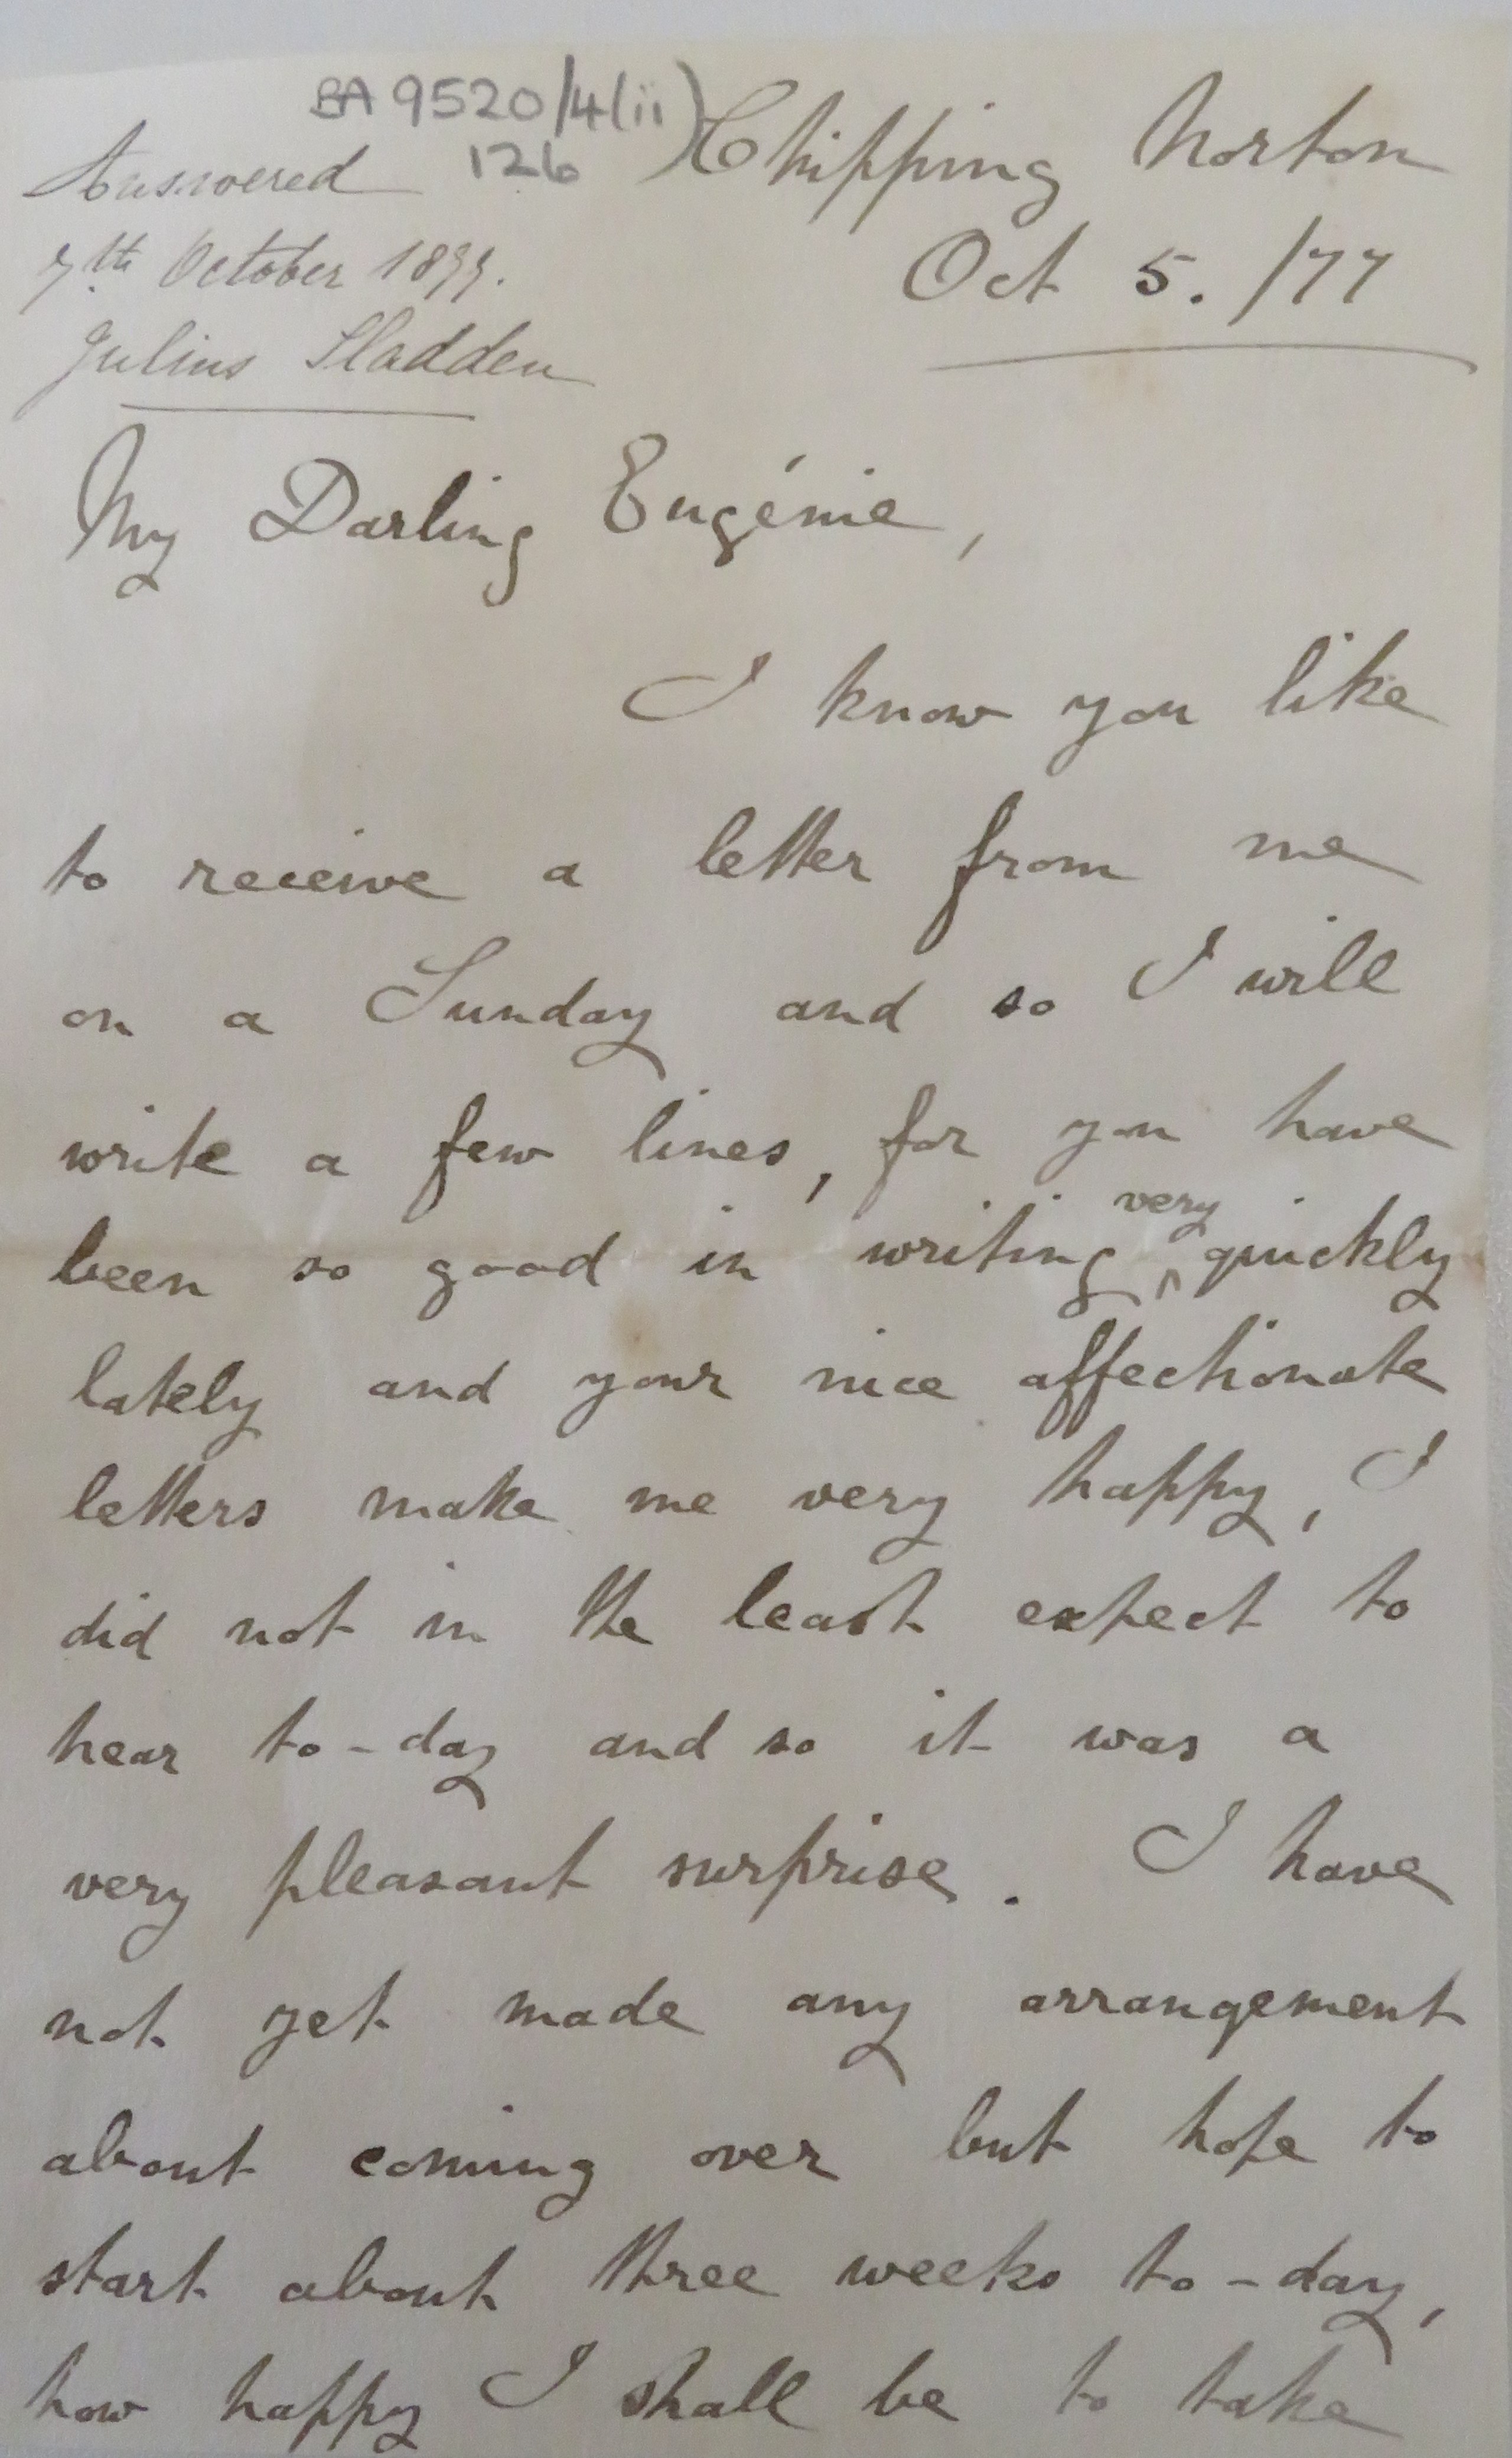 BA 9520/4(ii)
126
Answered
7th October 1877.
Julius Sladden
Chipping Norton
Oct 5. /77
My Darling Eugénie,
I know you like
to receive a letter from me
on a Sunday and so I will
write a few lines, for you have
been so good in writing very quickly
lately and your nice affectionate
letters make me very happy, I
did not in the least expect to
hear to-day and so it was a
very pleasant surprise. I have
not yet made any arrangement
about coming over but hope to
start about three weeks to-day,
how happy I shall be to take